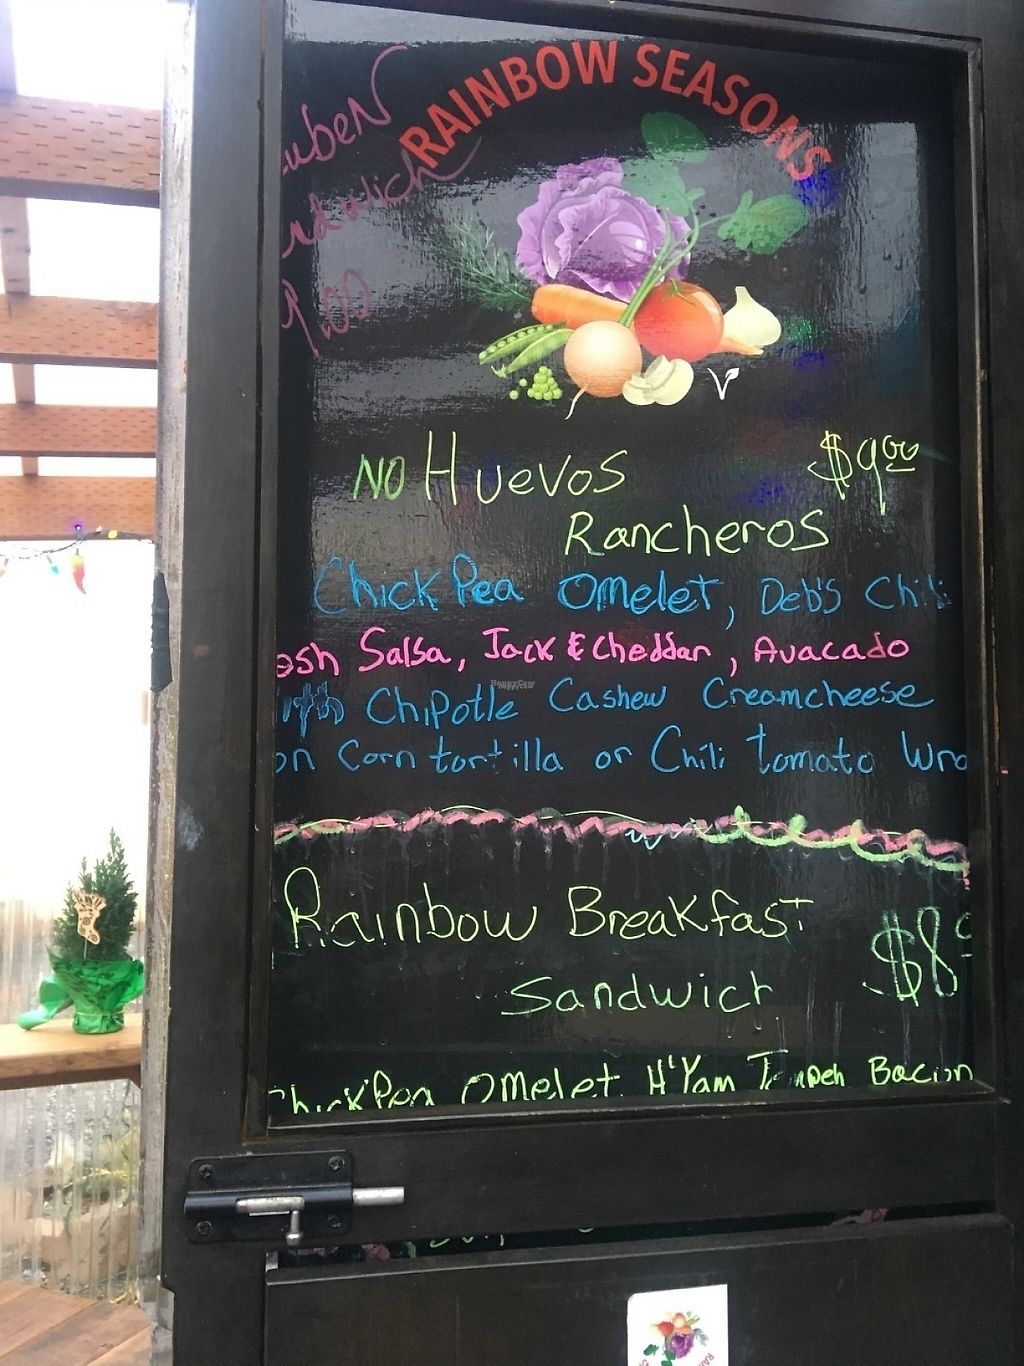 RAINBOW SEASONS
NO HUEVOS $9.00
RancheroS
ChickPea OMeleT, Deb's Chili
esh Salsa, Jack & Cheddar, Avacado
with Chipotle Cashew Creamcheese
on Corn tortilla or Chili tomato Wra
Rainbow BreakfasT $8
Sandwich
ChickPea OMeleT H'Yam Tempeh Bacon